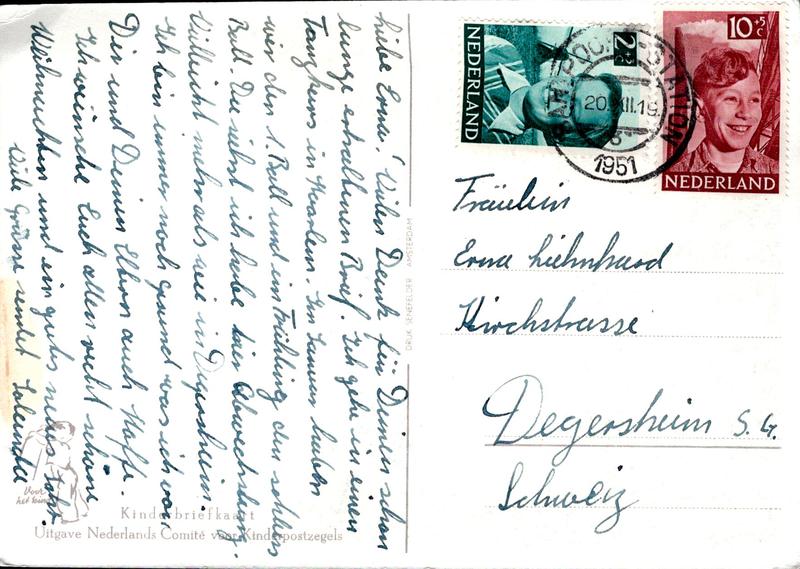 Liebe Erna! Vielen Dank für Deinen schon
lange erhaltenen Brief. Ich gehe in einen
Tanzkurs in Haarlem. Im Januar haben
wir den 1. Ball und im Frühling den schluss
Ball. Du siehst ich habe hier Abwechslung.
Villeicht mehr als wie in Degersheim.
Ich bin immer noch gesund was ich von
Dir und Deinen Eltern auch hoffe.
Ich wünsche Euch allen recht schöne
Weihnachten und ein gutes neues Jahr.
Viele Grüsse sendet
Voor
het kind
Kinderbriefkaart
Uitgave Nederlands Comité voor Kinderpostzegels
DRUK SENEFELDER AMSTERDAM
NEDERLAND
2
10+5c
NEDERLAND
STATION
20.XII.19
1951
Fräulein
Erna Liehnhard
Kirchstrasse
Degersheim S. G.
Schweiz